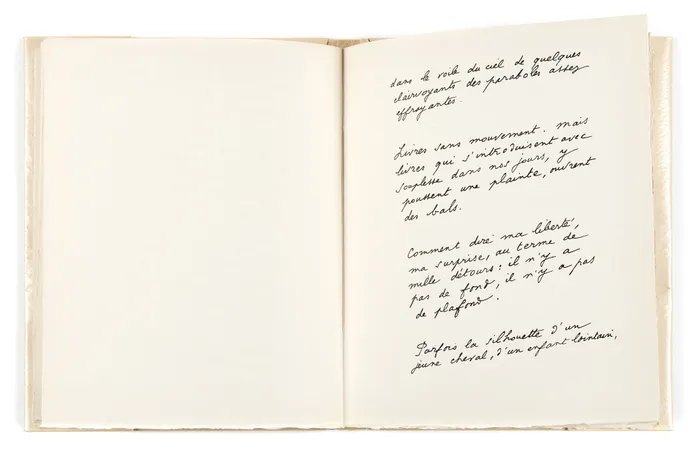 dans le voile du ciel de quelques
clairvoyants des paraboles assez
effrayantes.
Livres sans mouvement. mais
livres qui s'introduisent avec
souplesse dans nos jours, y
poussent une plainte, ouvrent
des bals.
Comment dire ma liberté,
ma surprise, au terme de
mille détours : il n'y a
pas de fond, il n'y a pas
de plafond.
Parfois la silhouette d'un
jeune cheval, d'un enfant lointain,